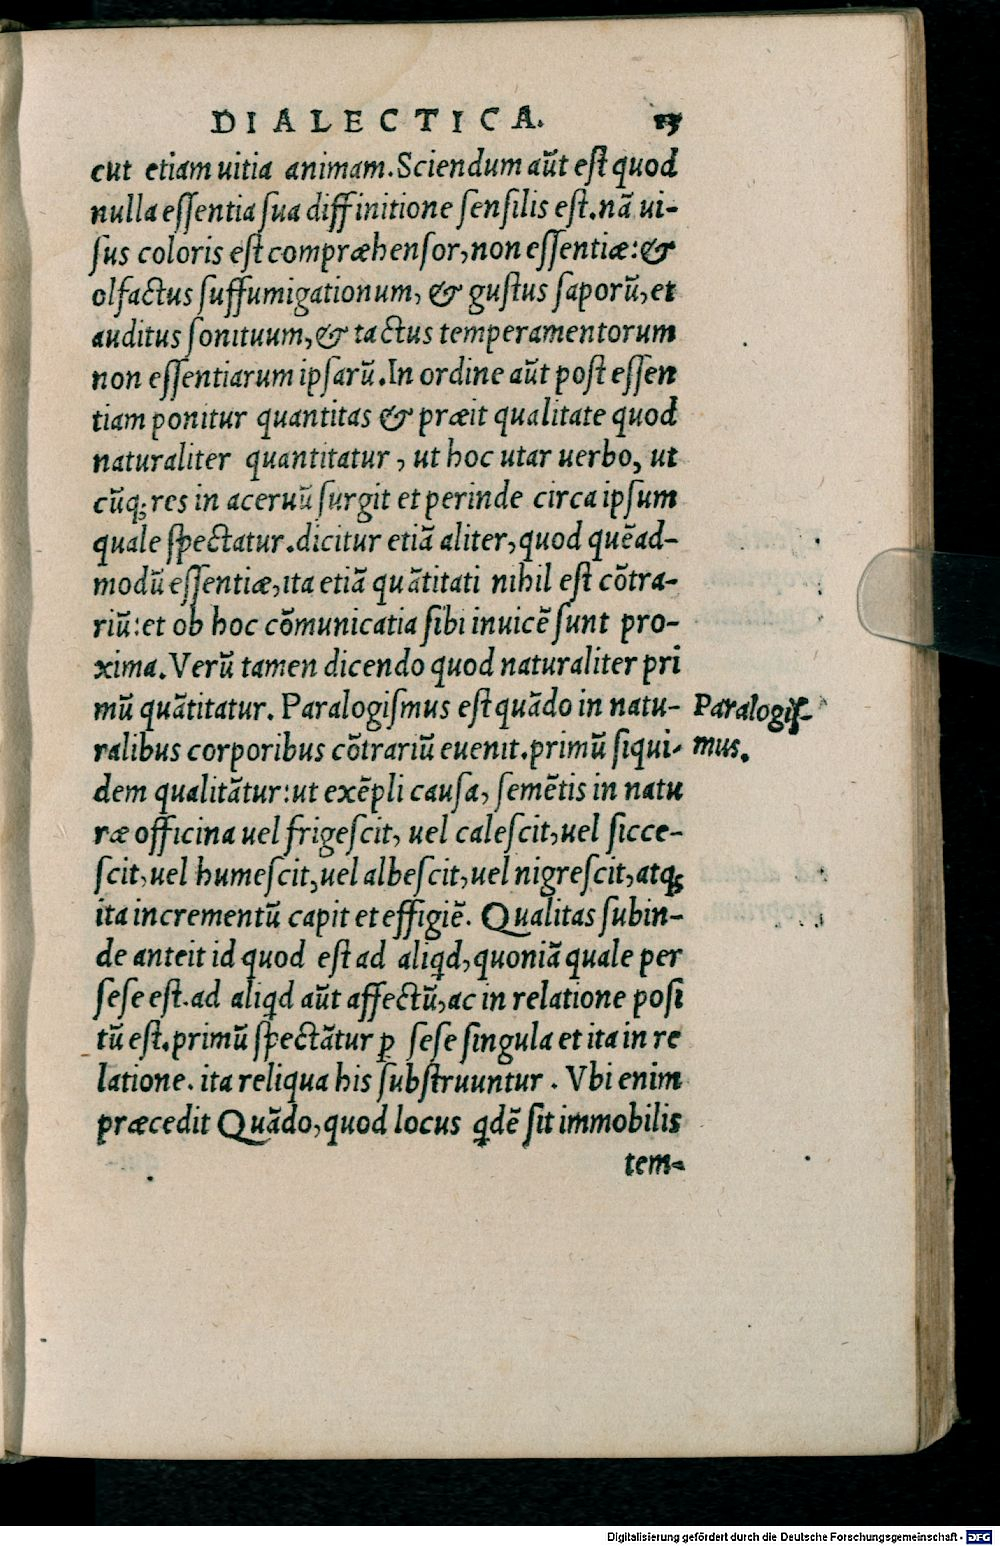 DIALECTICA. 13
cut etiam uitia animam. Sciendum aũt est quod
nulla essentia sua diffinitione sensilis est. nã ui-
sus coloris est compræhensor, non essentiæ: &
olfactus suffumigationum, & gustus saporũ, et
auditus sonituum, & tactus temperamentorum
non essentiarum ipsarũ. In ordine aũt post essen
tiam ponitur quantitas & præit qualitate quod
naturaliter quantitatur, ut hoc utar uerbo, ut
cũq; res in aceruũ surgit et perinde circa ipsum
quale spectatur. dicitur etiã aliter, quod quẽad-
modũ essentiæ, ita etiã quãtitati nihil est cõtra-
riũ: et ob hoc cõmunicatia sibi inuicẽ sunt pro-
xima. Verũ tamen dicendo quod naturaliter pri
mũ quãtitatur. Paralogismus est quãdo in natu-
Paralogis-
ralibus corporibus cõtrariũ euenit. primũ siqui-
mus.
dem qualitãtur: ut exẽpli causa, semẽtis in natu
ræ officina uel frigescit, uel calescit, uel sicce-
scit, uel humescit, uel albescit, uel nigrescit, atq;
ita incrementũ capit et effigiẽ. Qualitas subin-
de anteit id quod est ad aliqd, quoniã quale per
sese est. ad aliqd aũt affectũ, ac in relatione posi
tũ est. primũ spectãtur ꝑ sese singula et ita in re
latione. ita reliqua his substruuntur. Vbi enim
præcedit Quãdo, quod locus qdẽ sit immobilis
tem-
Digitalisierung gefördert durch die Deutsche Forschungsgemeinschaft - DFG